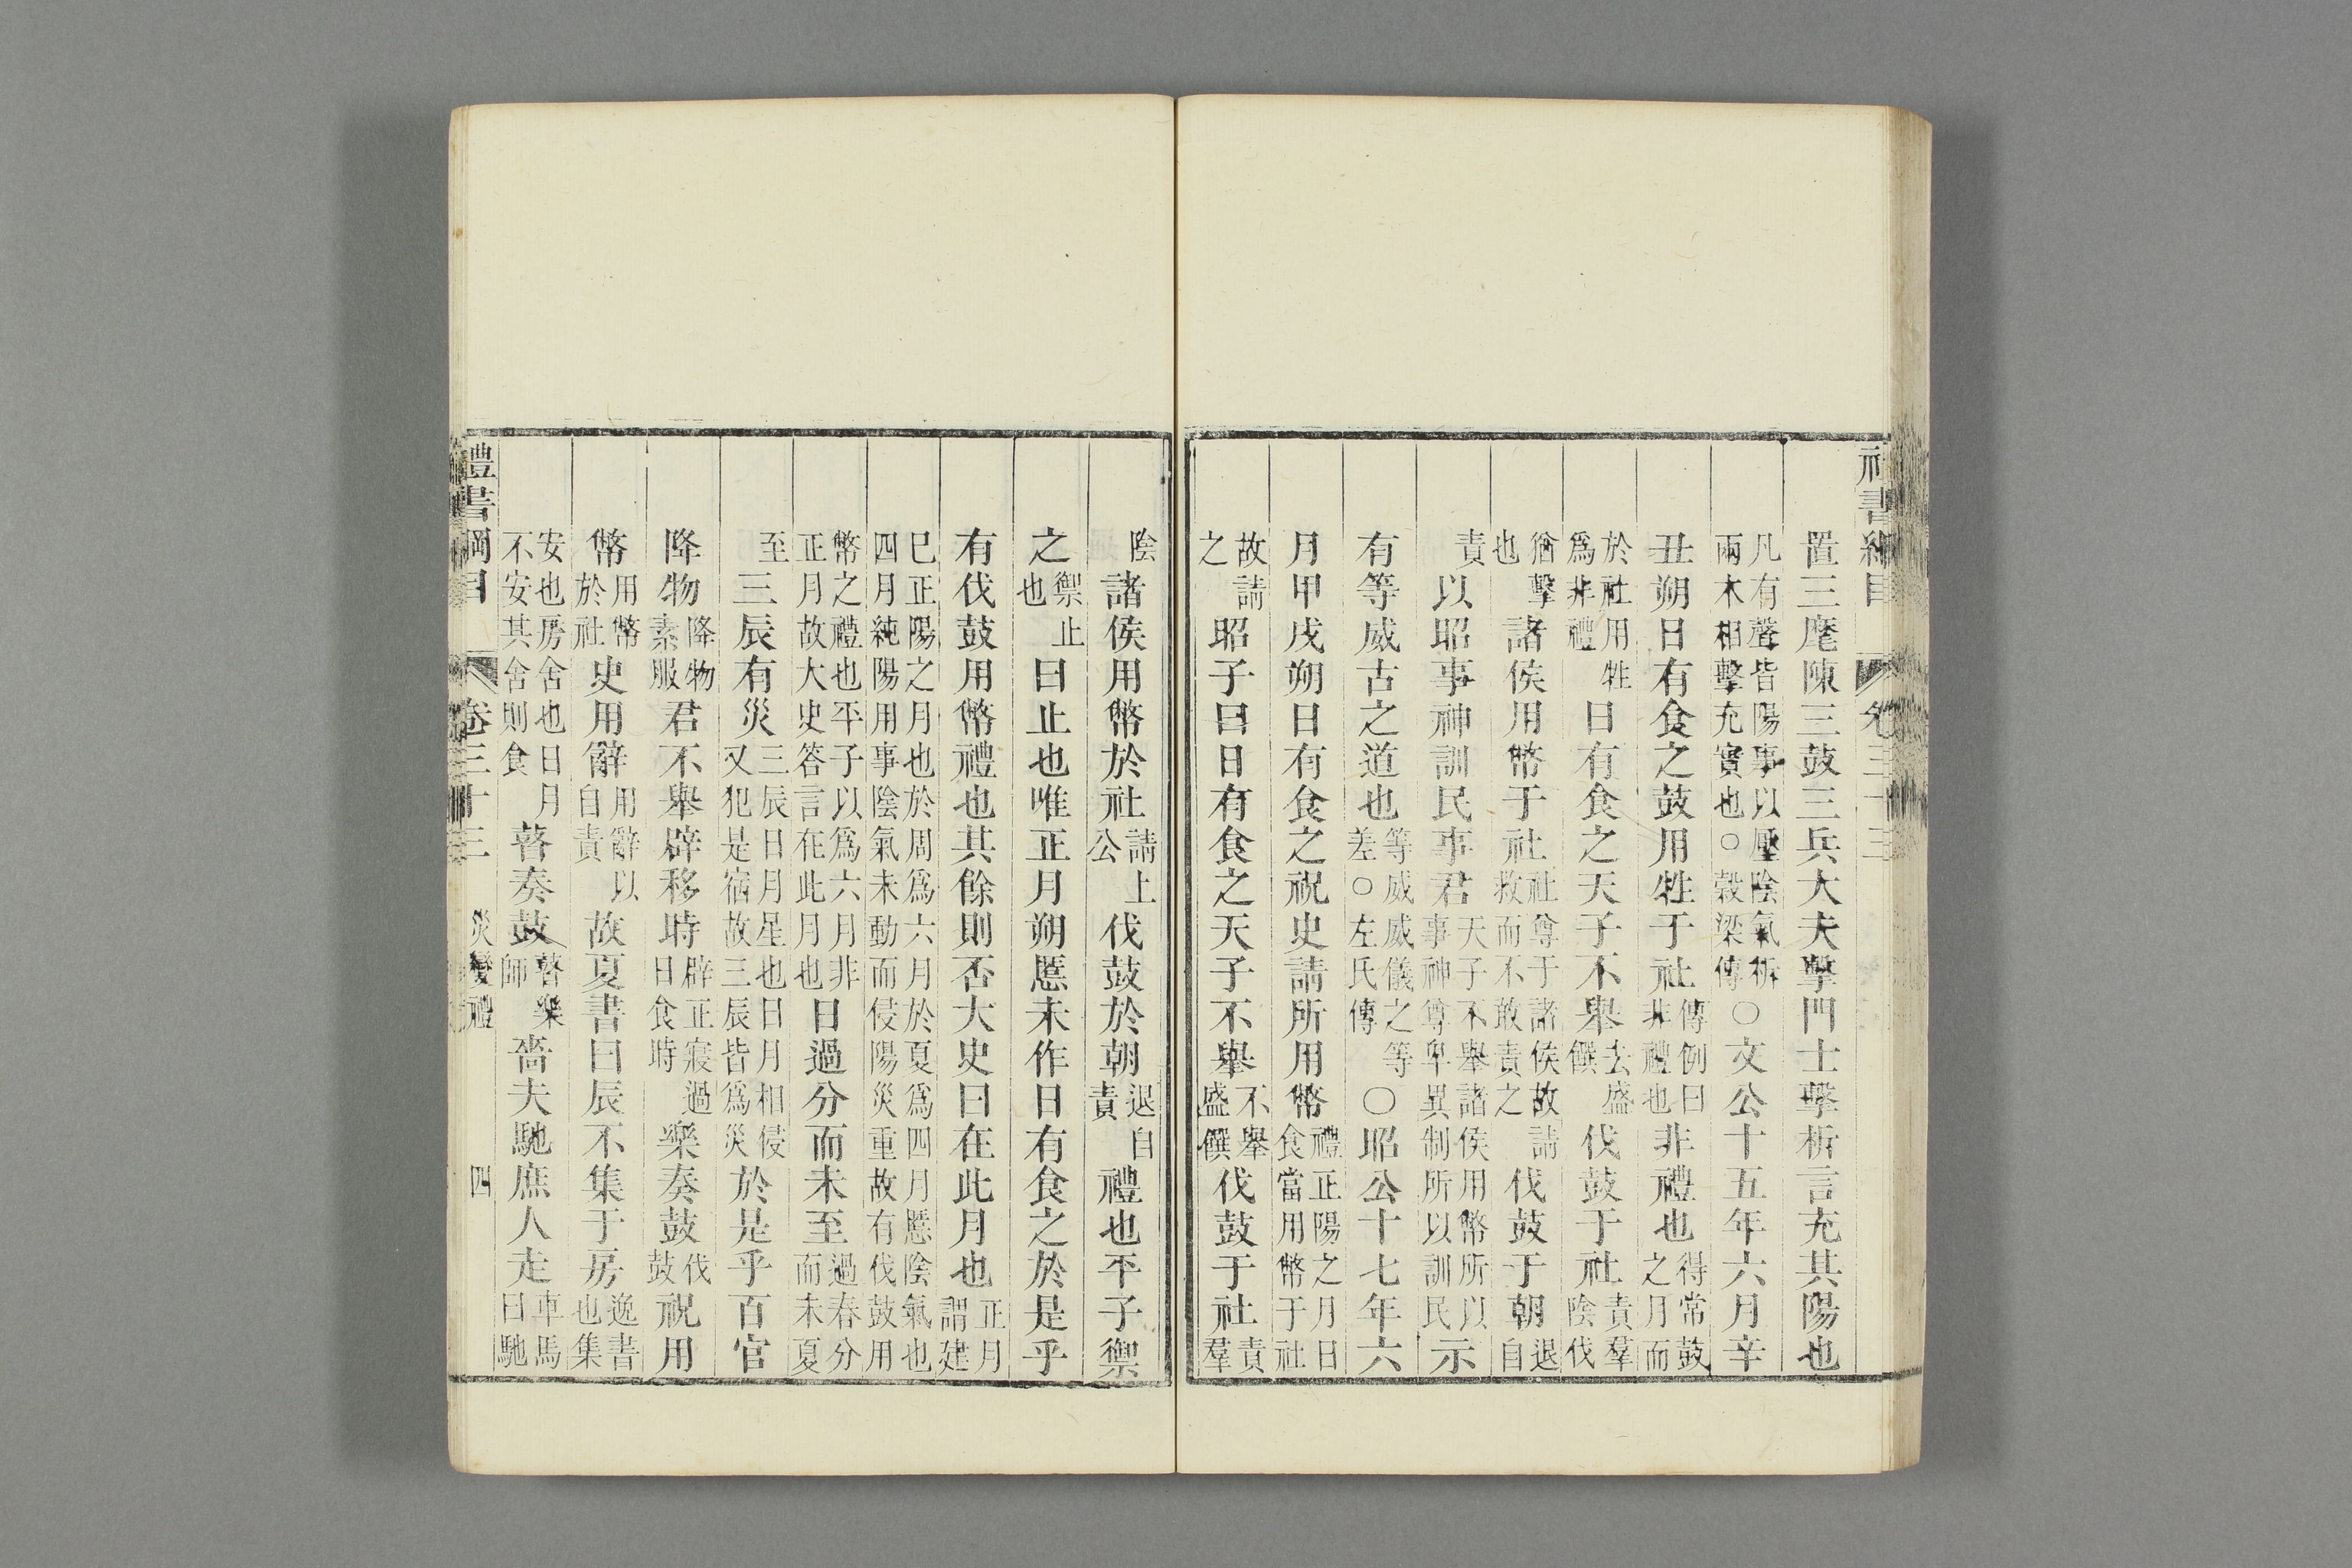 禮書綱目 卷三十三
置三麾陳三鼓三兵大夫擊門士擊柝言充其陽也
凡有聲皆陽事以壓陰氣柝兩木相擊充實也○穀梁傳○文公十五年六月辛
丑朔日有食之鼓用牲于社傳例曰非禮也非禮也得常鼓之月而
於社用牲爲非禮日有食之天子不舉去盛饌伐鼓于社責羣陰伐
猶擊也諸侯用幣于社社尊于諸侯故請救而不敢責之伐鼓于朝退自
責以昭事神訓民事君天子不舉諸侯用幣所以事神尊卑異制所以訓民示
有等威古之道也等威威儀之等差○左氏傳○昭公十七年六
月甲戌朔日有食之祝史請所用幣禮正陽之月日食當用幣于社
故請之昭子曰日有食之天子不舉不舉盛饌伐鼓于社責羣
陰諸侯用幣於社請上公伐鼓於朝退自責禮也平子禦
之禦止也曰止也唯正月朔慝未作日有食之於是乎
有伐鼓用幣禮也其餘則否大史曰在此月也正月謂建
巳正陽之月也於周爲六月於夏爲四月慝陰氣也四月純陽用事陰氣未動而侵陽災重故有伐鼓用
幣之禮也平子以爲六月非正月故大史答言在此月也日過分而未至過春分而未夏
至三辰有災三辰日月星也日月相侵又犯是宿故三辰皆爲災於是乎百官
降物降物素服君不舉辟移時辟正寢過日食時樂奏鼓伐鼓祝用
幣用幣於社史用辭用辭以自責故夏書曰辰不集于房逸書也集
安也房舍也日月不安其舍則食瞽奏鼓瞽樂師嗇夫馳庶人走車馬曰馳
禮書綱目 卷三十三 災變禮 四